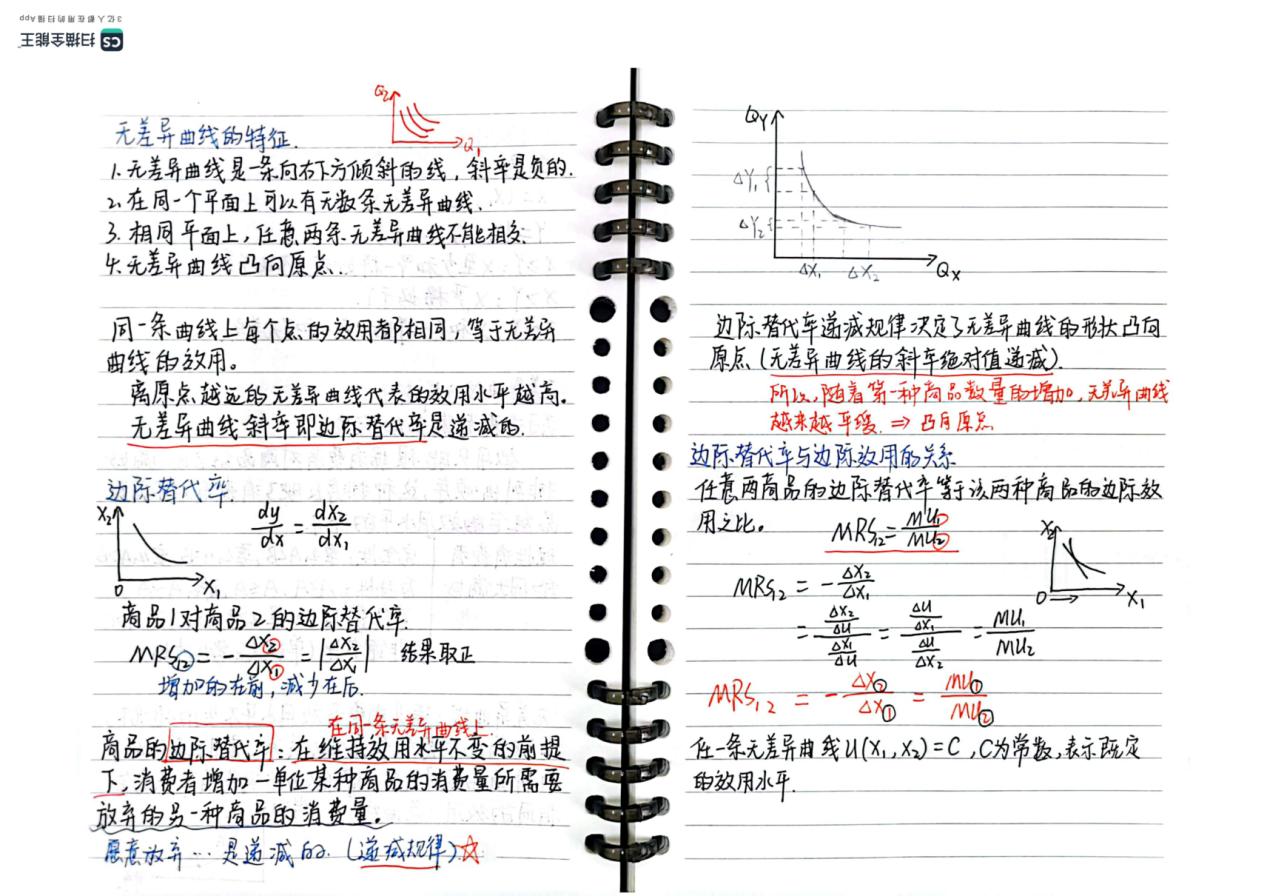 3亿人都在用的扫描App
CS 扫描全能王
Q2
Q1
无差异曲线的特征.
1.无差异曲线是一条向右下方倾斜的线，斜率是负的.
2.在同一个平面上可以有无数条无差异曲线.
3.相同平面上，任意两条无差异曲线不能相交.
4.无差异曲线凸向原点.
同一条曲线上每个点的效用都相同，等于无差异
曲线的效用。
离原点越远的无差异曲线代表的效用水平越高.
无差异曲线斜率即边际替代率是递减的.
边际替代率.
X2
0
X1
dy/dx = dx2/dx1
商品1对商品2的边际替代率.
MRS12 = -ΔX2/ΔX1 = |ΔX2/ΔX1| 结果取正
增加的在前，减少在后.
在同一条无差异曲线上.
商品的边际替代率：在维持效用水平不变的前提
下，消费者增加一单位某种商品的消费量所需要
放弃的另一种商品的消费量。
愿意放弃…是递减的.（递减规律）☆
QY
ΔY1
ΔY2
ΔX1
ΔX2
QX
边际替代率递减规律决定了无差异曲线的形状凸向
原点（无差异曲线的斜率绝对值递减）.
所以，随着第一种商品数量的增加，无差异曲线
越来越平缓. ⇒ 凸向原点
边际替代率与边际效用的关系
任意两商品的边际替代率等于该两种商品的边际效
用之比。
MRS12 = MU①/MU②
X2
0
X1
MRS12 = -ΔX2/ΔX1
= (ΔX2/ΔU)/(ΔX1/ΔU) = (ΔU/ΔX1)/(ΔU/ΔX2) = MU1/MU2
MRS12 = -ΔX②/ΔX① = MU①/MU②
任一条无差异曲线U(X1,X2)=C，C为常数，表示既定
的效用水平.